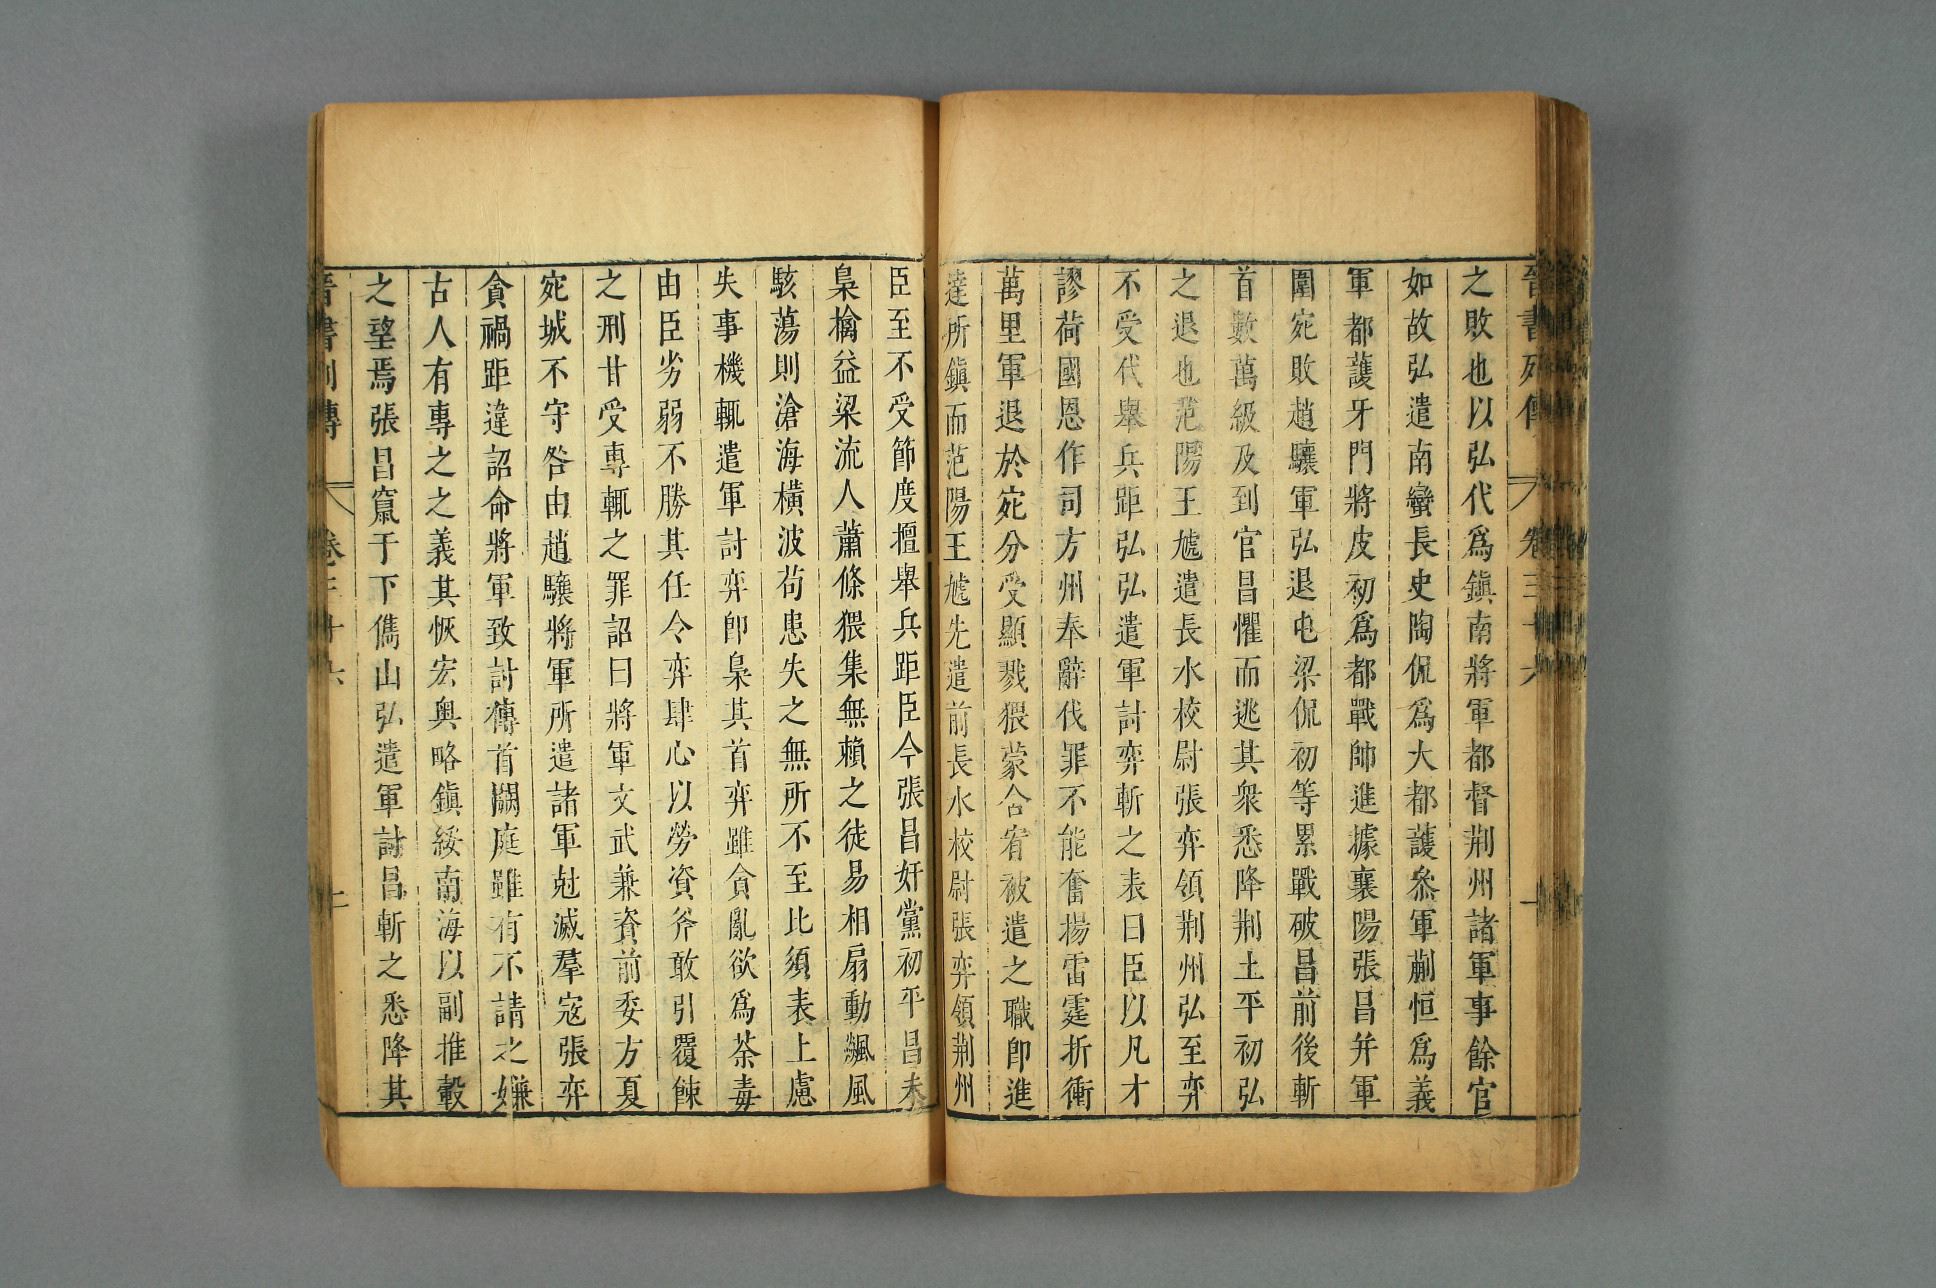 晉書列傳 卷三十六 一
之敗也以弘代爲鎮南將軍都督荆州諸軍事餘官
如故弘遣南蠻長史陶侃爲大都護叅軍蒯恒爲義
軍都護牙門將皮初爲都戰帥進據襄陽張昌并軍
圍宛敗趙驤軍弘退屯梁侃初等累戰破昌前後斬
首數萬級及到官昌懼而逃其衆悉降荆土平初弘
之退也范陽王虓遣長水校尉張弈領荆州弘至弈
不受代舉兵距弘弘遣軍討弈斬之表曰臣以凡才
謬荷國恩作司方州奉辭伐罪不能奮揚雷霆折衝
萬里軍退於宛分受顯戮猥蒙含宥被遣之職即進
達所鎮而范陽王虓先遣前長水校尉張弈領荆州
臣至不受節度擅舉兵距臣今張昌奸黨初平昌未
梟擒益梁流人蕭條猥集無賴之徒易相扇動飈風
駭蕩則滄海橫波苟患失之無所不至比須表上慮
失事機輒遣軍討弈即梟其首弈雖貪亂欲爲荼毒
由臣劣弱不勝其任令弈肆心以勞資斧敢引覆餗
之刑甘受專輒之罪詔曰將軍文武兼資前委方夏
宛城不守咎由趙驤將軍所遣諸軍尅滅羣寇張弈
貪禍距違詔命將軍致討傳首闕庭雖有不請之嫌
古人有專之之義其恢宏奥略鎮綏南海以副推轂
之望焉張昌竄于下儁山弘遣軍討昌斬之悉降其
晉書列傳 卷三十六